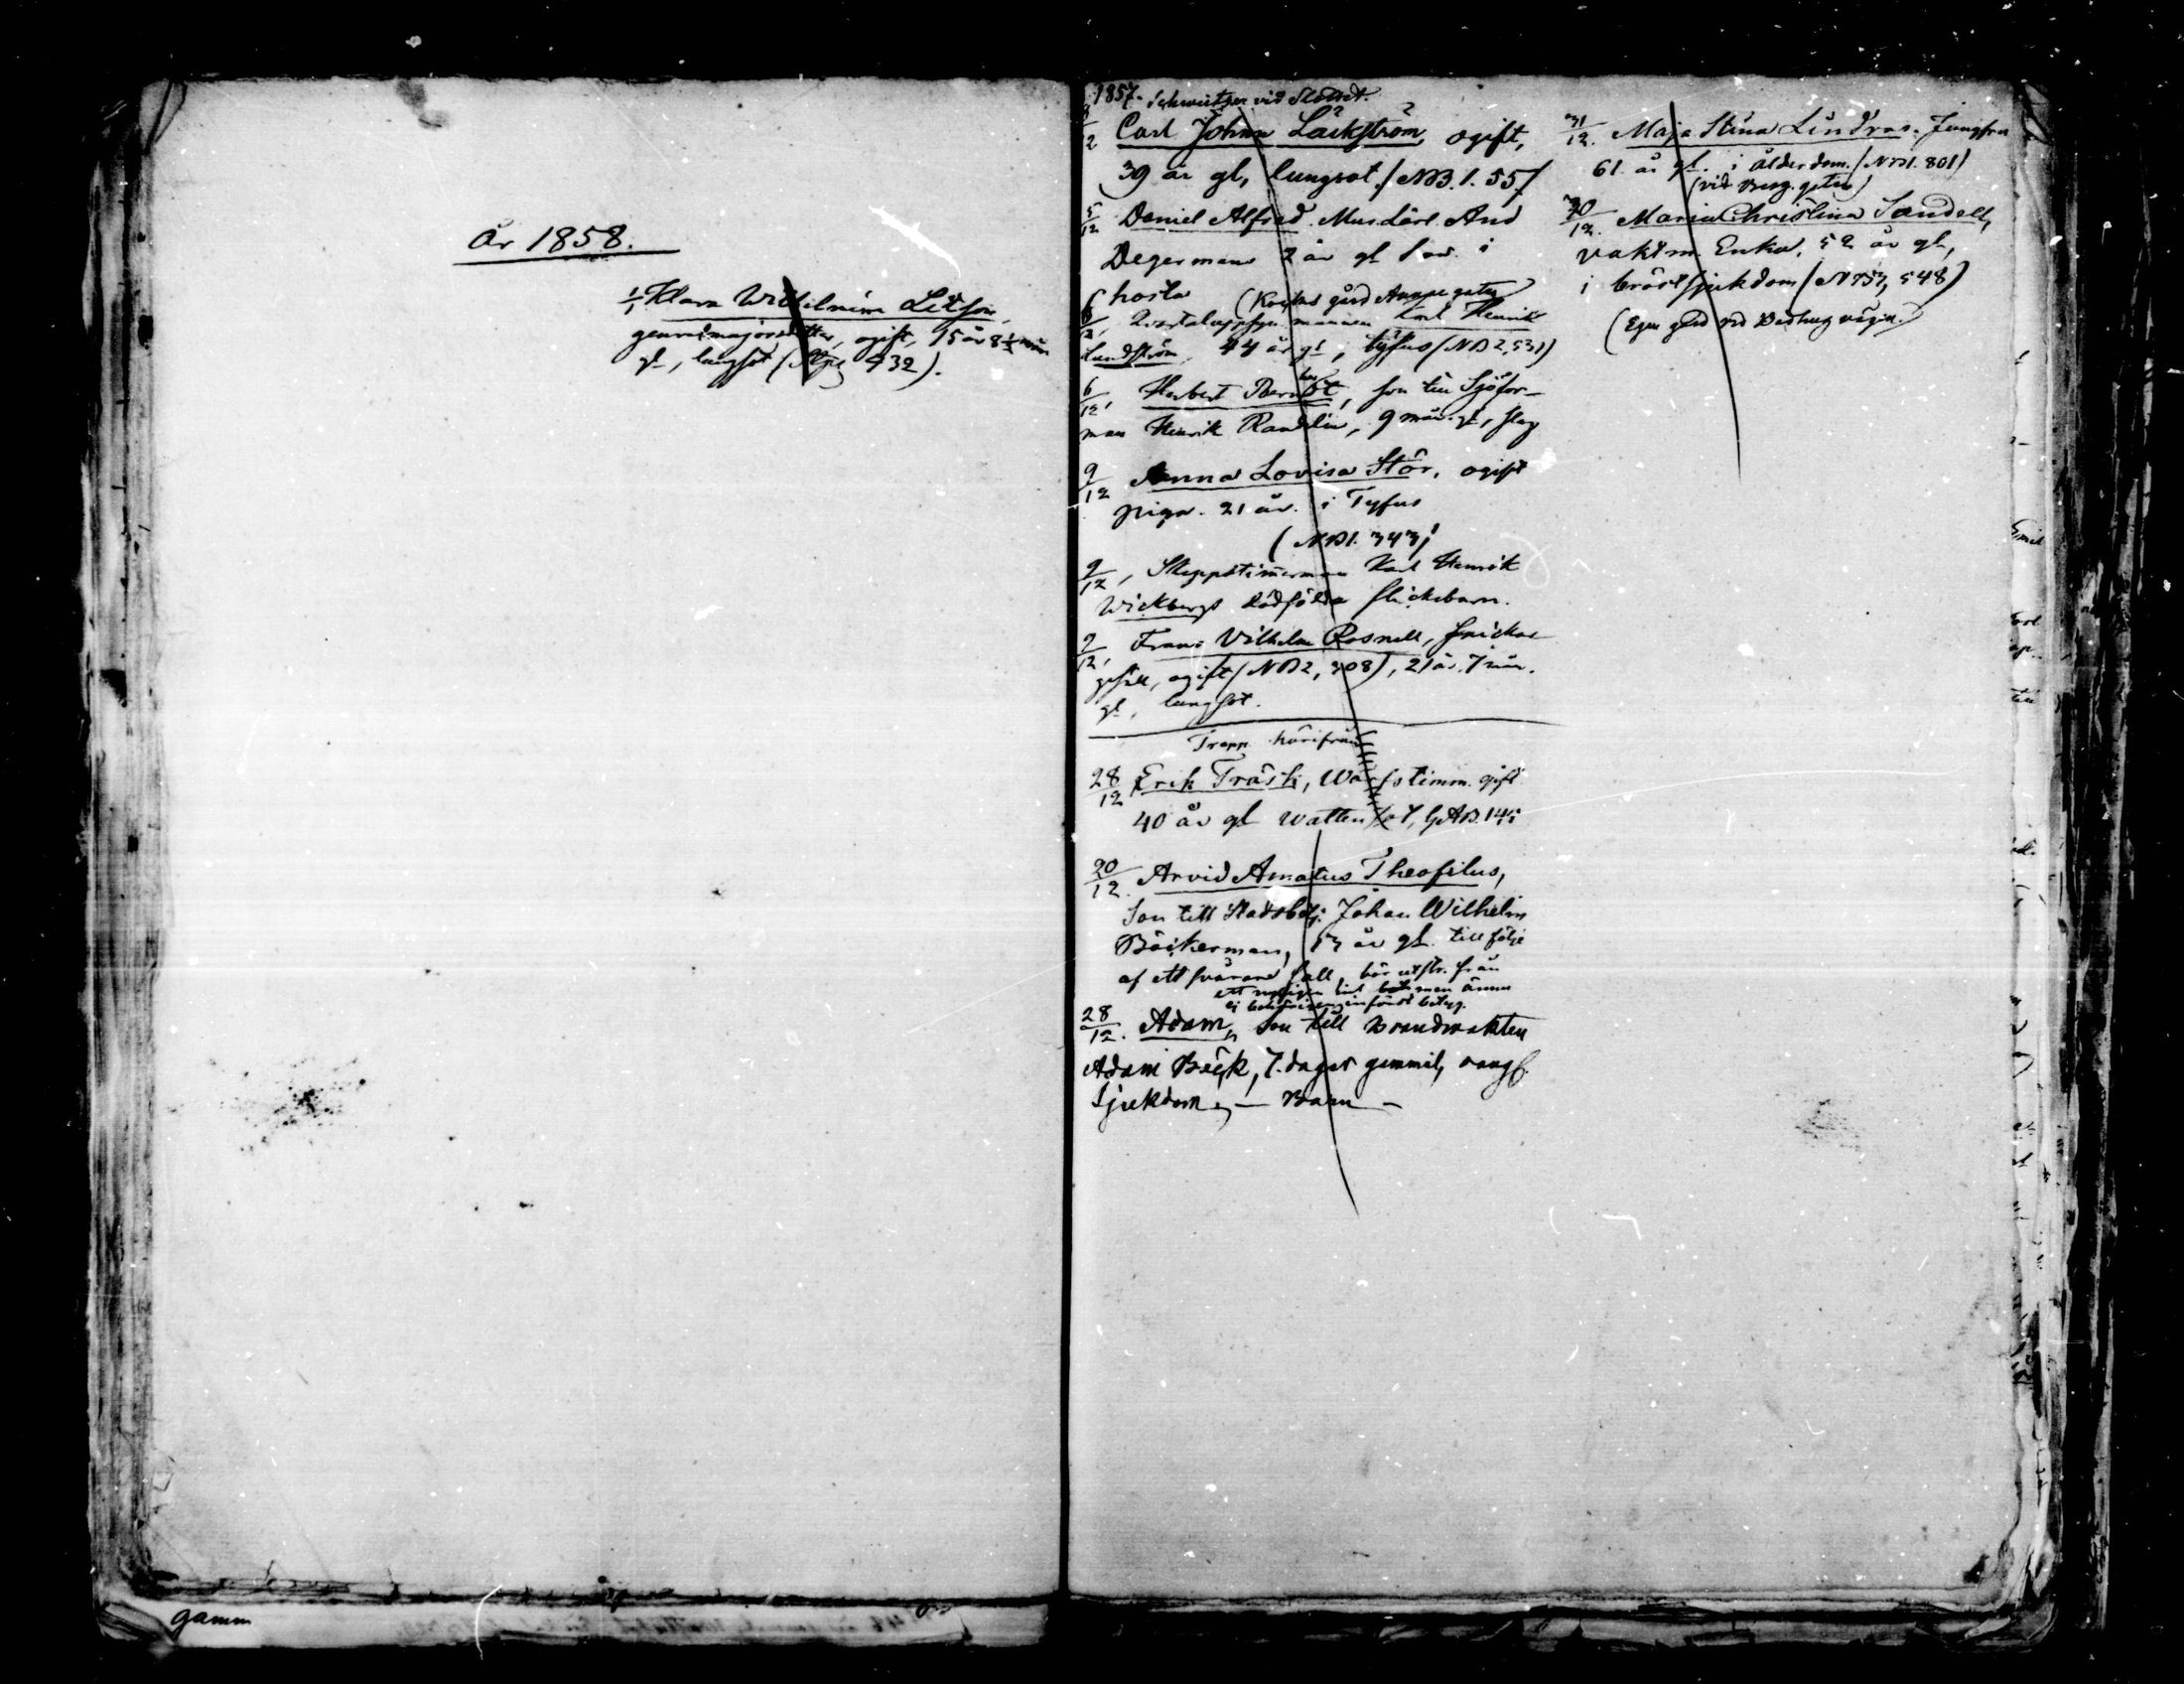 År 1858.
1/1 Klara Wilhelmina
generalmajorsdotter, ogift, 15 år 8½ mån
gl, lungsot ( 432).
1857. Schweitzer vid Slottet.
2 Carl Johan Läckström, ogift,
39 år gl, lungsot. (NB. 1. 55)
5/12 Daniel Alfred. Mur.Lärl. And
Degerman 2 år gl i
hosta ( gård Aunegatan)
6/12, mannen Karl Henrik
Lundström, 44 år gl, tyfus (NB 2,531)
6/12, Herbert , son till Sjöfor-
man Henrik Randelin, 9 mån. gl, slag
9/12 Anna Lovisa Stör, ogift
piga. 21 år. i Tyfus
(NB1. 343)
9/12, Skeppstimerman Karl Henrik
Wickbergs dödfödda flickebarn.
9/12, Frans Vilhelm Rosnell, snickar
gesäll, ogift (NB2, 308), 21 år. 7 mån.
gl, lungsot.
Trapp härifrån
28/12 Erik Träsk, Warfstimm. gift
40 år gl Wattensot, GAB. 14
20/12. Arvid Amatus Theofilus,
Son till Stadsbetj: Johan Wilhelm
Böckerman, år gl. till följe
af ett svårare fall, bör utstr. från
ett men ännu
ej infördt betyg.
28/12. Adam, Son till Brandvakten
Adam Bäck, 7. dagar gammal,
Sjukdom, — Barn —
31/12. Maja Stina Lindros. Jungfru
61. år gl. i ålderdom. (NB1. 801)
(vid Berg. gatan)
30/12. Maria Christina Sandell,
vaktm. Enka. 52 år gl,
i bröstsjukdom (NB3, 548)
(Egen gård vid vägen.)
gamm